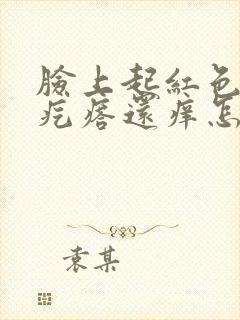 臉上起紅色
疙瘩還癢怎
袁某